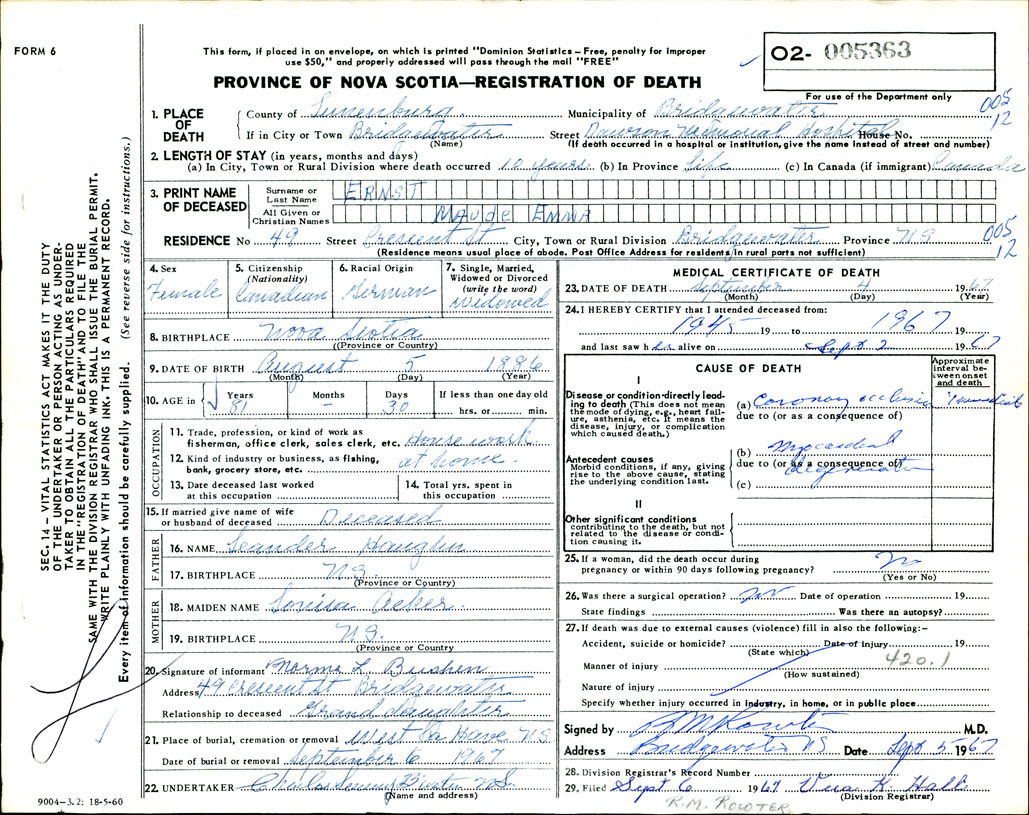 FORM 6
This form, if placed in an envelope, on which is printed "Dominion Statistics – Free, penalty for improper
use $50," and properly addressed will pass through the mail "FREE"
02- 005363
PROVINCE OF NOVA SCOTIA—REGISTRATION OF DEATH
For use of the Department only
005
12
1. PLACE OF DEATH
County of Lunenburg Municipality of Bridgewater
If in City or Town Bridgewater Street Dawson Memorial Hospital House No.
(Name) (If death occurred in a hospital or institution, give the name instead of street and number)
2. LENGTH OF STAY (in years, months and days)
(a) In City, Town or Rural Division where death occurred 10 years (b) In Province Life (c) In Canada (if immigrant) Canada
3. PRINT NAME OF DECEASED
Surname or Last Name ERNST
All Given or Christian Names Maude Emma
RESIDENCE No 49 Street Crescent St City, Town or Rural Division Bridgewater Province NS
005
12
(Residence means usual place of abode. Post Office Address for residents in rural parts not sufficient)
4. Sex
Female
5. Citizenship
(Nationality)
Canadian
6. Racial Origin
German
7. Single, Married,
Widowed or Divorced
(write the word)
Widowed
8. BIRTHPLACE Nova Scotia
(Province or Country)
9. DATE OF BIRTH August 5 1886
(Month) (Day) (Year)
10. AGE in Years 81 Months – Days 30 If less than one day old
hrs. or min.
OCCUPATION
11. Trade, profession, or kind of work as
fisherman, office clerk, sales clerk, etc. House work
12. Kind of industry or business, as fishing,
bank, grocery store, etc. at home.
13. Date deceased last worked
at this occupation
14. Total yrs. spent in
this occupation
15. If married give name of wife
or husband of deceased Deceased
FATHER
16. NAME Leander
17. BIRTHPLACE NS.
(Province or Country)
MOTHER
18. MAIDEN NAME Louisa Acker
19. BIRTHPLACE NS.
(Province or Country
20. Signature of informant Norma L.
Address 49 Crescent St Bridgewater
Relationship to deceased Grand daughter
21. Place of burial, cremation or removal West La Have NS
Date of burial or removal September 6 1967
22. UNDERTAKER Charles NS.
(Name and address)
MEDICAL CERTIFICATE OF DEATH
23. DATE OF DEATH September 4 1967
(Month) (Day) (Year)
24. I HEREBY CERTIFY that I attended deceased from:
1945 19 to 1967 19
and last saw her alive on Sept 2 1967
CAUSE OF DEATH
Approximate
interval be-
tween onset
and death
I
Disease or condition directly lead-
ing to death (This does not mean
the mode of dying, e.g., heart fail-
ure, asthenia, etc. It means the
disease, injury, or complication
which caused death.)
(a) Coronary occlusion Immediate
due to (or as a consequence of)
Antecedent causes
Morbid conditions, if any, giving
rise to the above cause, stating
the underlying condition last.
(b) Myocardial
due to (or as a consequence of)
degeneration
(c)
II
Other significant conditions
contributing to the death, but not
related to the disease or condi-
tion causing it.
25. If a woman, did the death occur during
pregnancy or within 90 days following pregnancy? No
(Yes or No)
26. Was there a surgical operation? no Date of operation 19
State findings Was there an autopsy?
27. If death was due to external causes (violence) fill in also the following:–
Accident, suicide or homicide? Date of injury 19
(State which)
420.1
Manner of injury
(How sustained)
Nature of injury
Specify whether injury occurred in industry, in home, or in public place
Signed by M.D.
Address Bridgewater NS Date Sept 5 1967
28. Division Registrar's Record Number
29. Filed Sept 6 1967 Vera K. Hall
(Division Registrar)
R.M. ROWTER
9004–3.2: 18-5-60
SEC. 14 – VITAL STATISTICS ACT MAKES IT THE DUTY
OF THE UNDERTAKER OR PERSON ACTING AS UNDER-
TAKER TO OBTAIN ALL THE PARTICULARS REQUIRED
IN THE "REGISTRATION OF DEATH" AND TO FILE THE
SAME WITH THE DIVISION REGISTRAR WHO SHALL ISSUE THE BURIAL PERMIT.
WRITE PLAINLY WITH UNFADING INK. THIS IS A PERMANENT RECORD.
Every item of information should be carefully supplied. (See reverse side for instructions.)